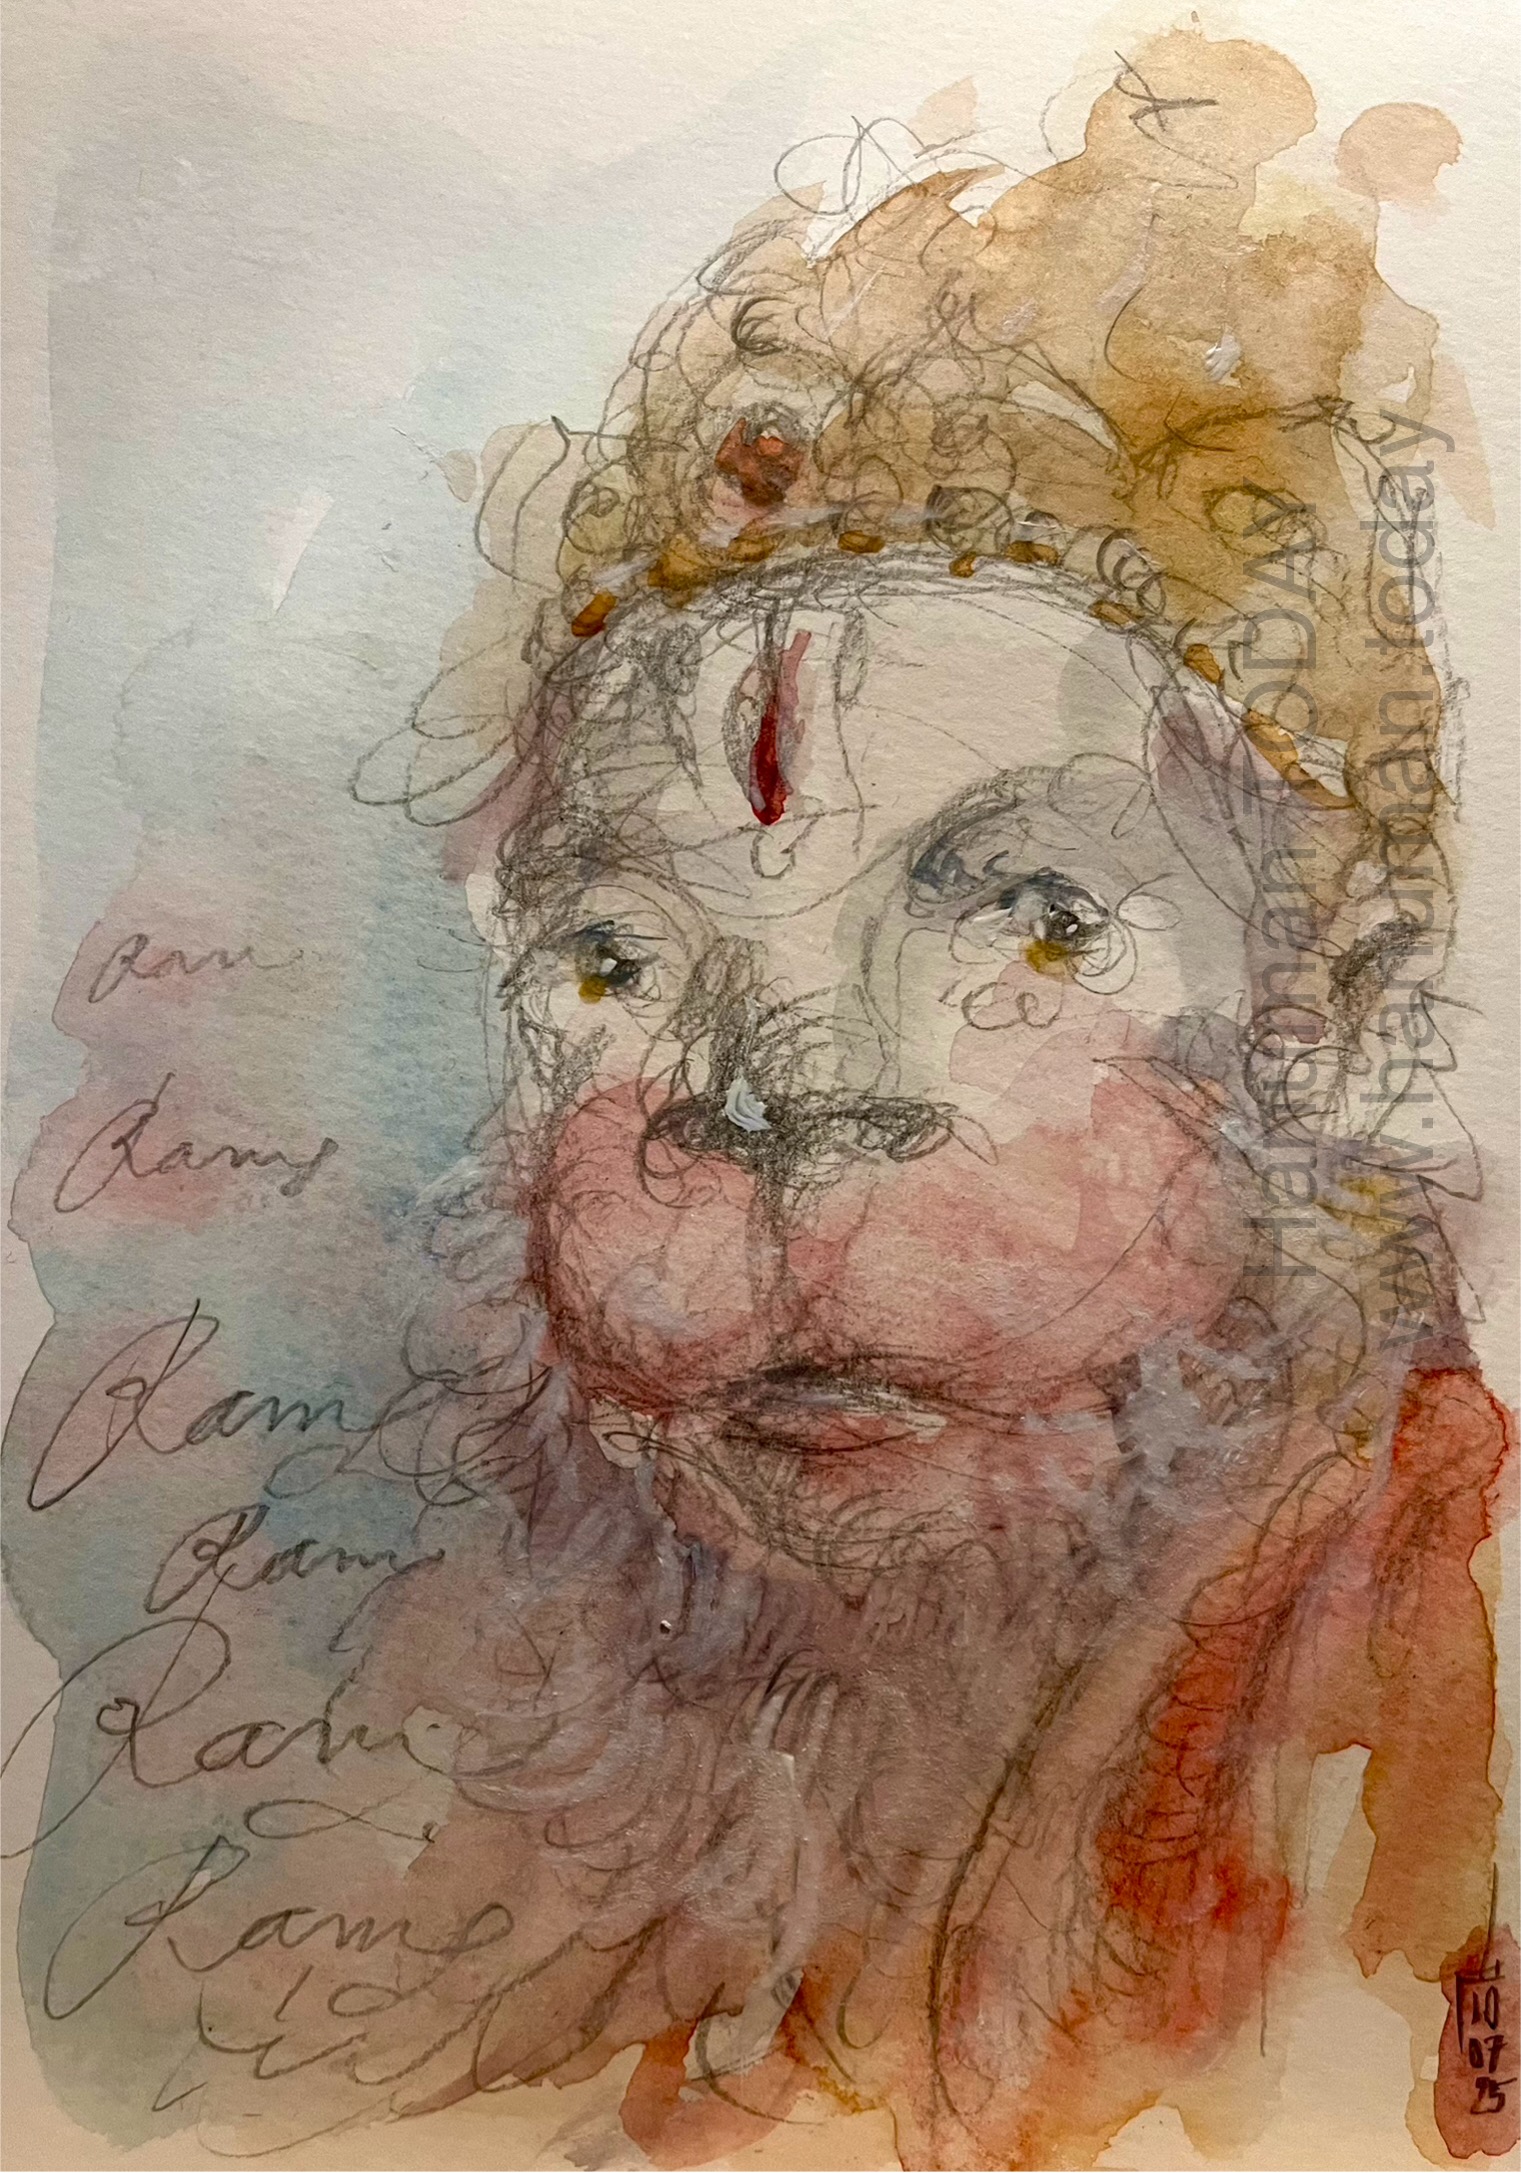 Ram
Ram
Ram
Ram
Ram
Ram
Hanuman TODAY
www.hanuman.today
10
07
25